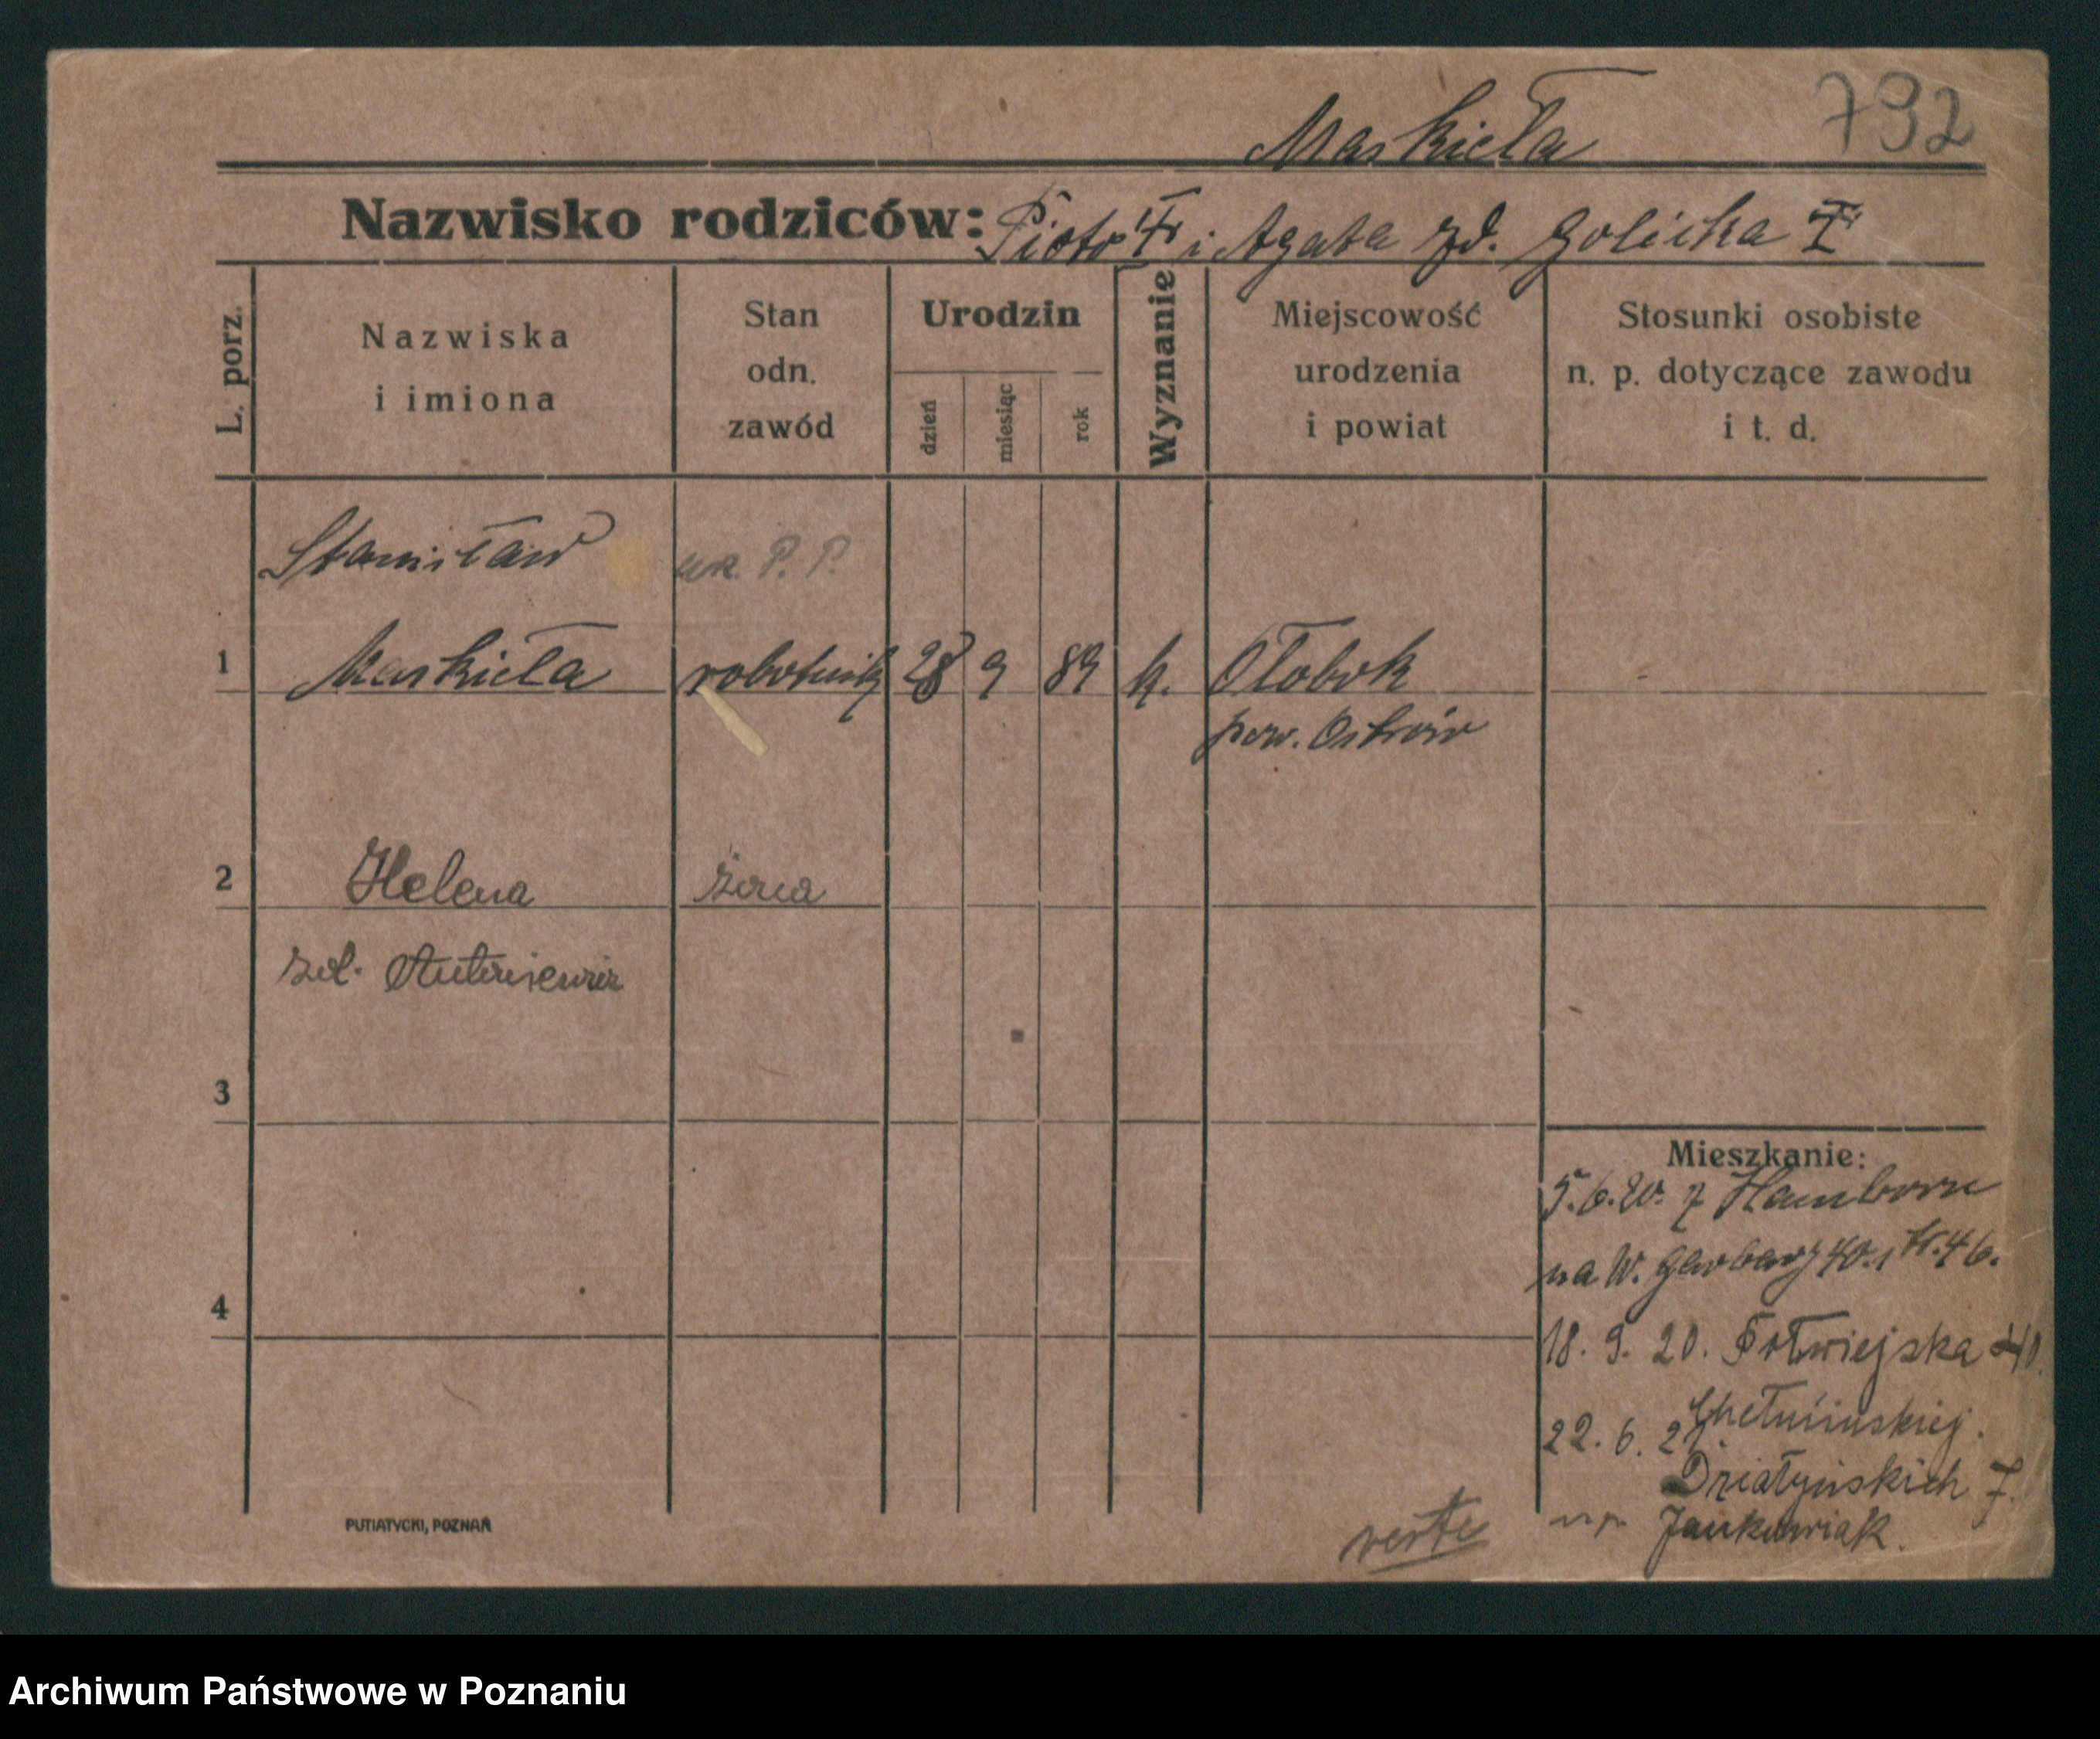 792
Maskieła
Nazwisko rodziców: Piotr i Agata zd. Golicka
L. porz.
Nazwiska
i imiona
Stan
odn.
zawód
Urodzin
dzień
miesiąc
rok
Wyznanie
Miejscowość
urodzenia
i powiat
Stosunki osobiste
n. p. dotyczące zawodu
i t. d.
Stanisław P. P.
1 Maskieła robotnik 28 9 89 k. Ołobok
pow. Ostrów
2 Helena żona
zd.
3
4
Mieszkanie:
5.6.20. z Hamborn
na W. Garbary 40.
18. 9. 20. Półwiejska 40.
22. 6. Chełmińskiej.
Działyńskich 7.
Jankowiak.
verte
PUTIATYCKI, POZNAŃ
Archiwum Państwowe w Poznaniu